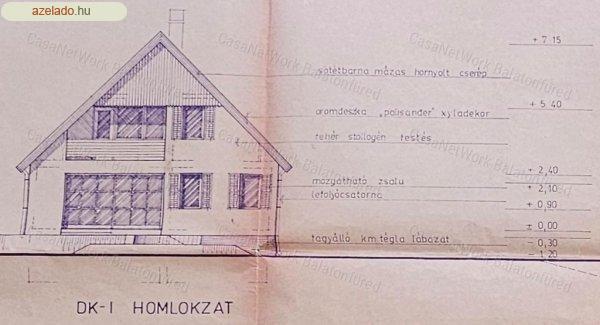 azelado.hu
CasaNetWork Balatonfüred
CasaNetWork Balatonfüred
CasaNetWork Balatonfüred
+ 7.15
sötétbarna mázas hornyolt cserép
+ 5.40
oromdeszka „paliszander" xyladekor
fehér stollogén festés
+ 2,40
mozgatható zsalu
+ 2,10
lefolyócsatorna
+ 0,90
± 0,00
fagyálló km.tégla lábazat
- 0,30
- 1.20
DK-I HOMLOKZAT